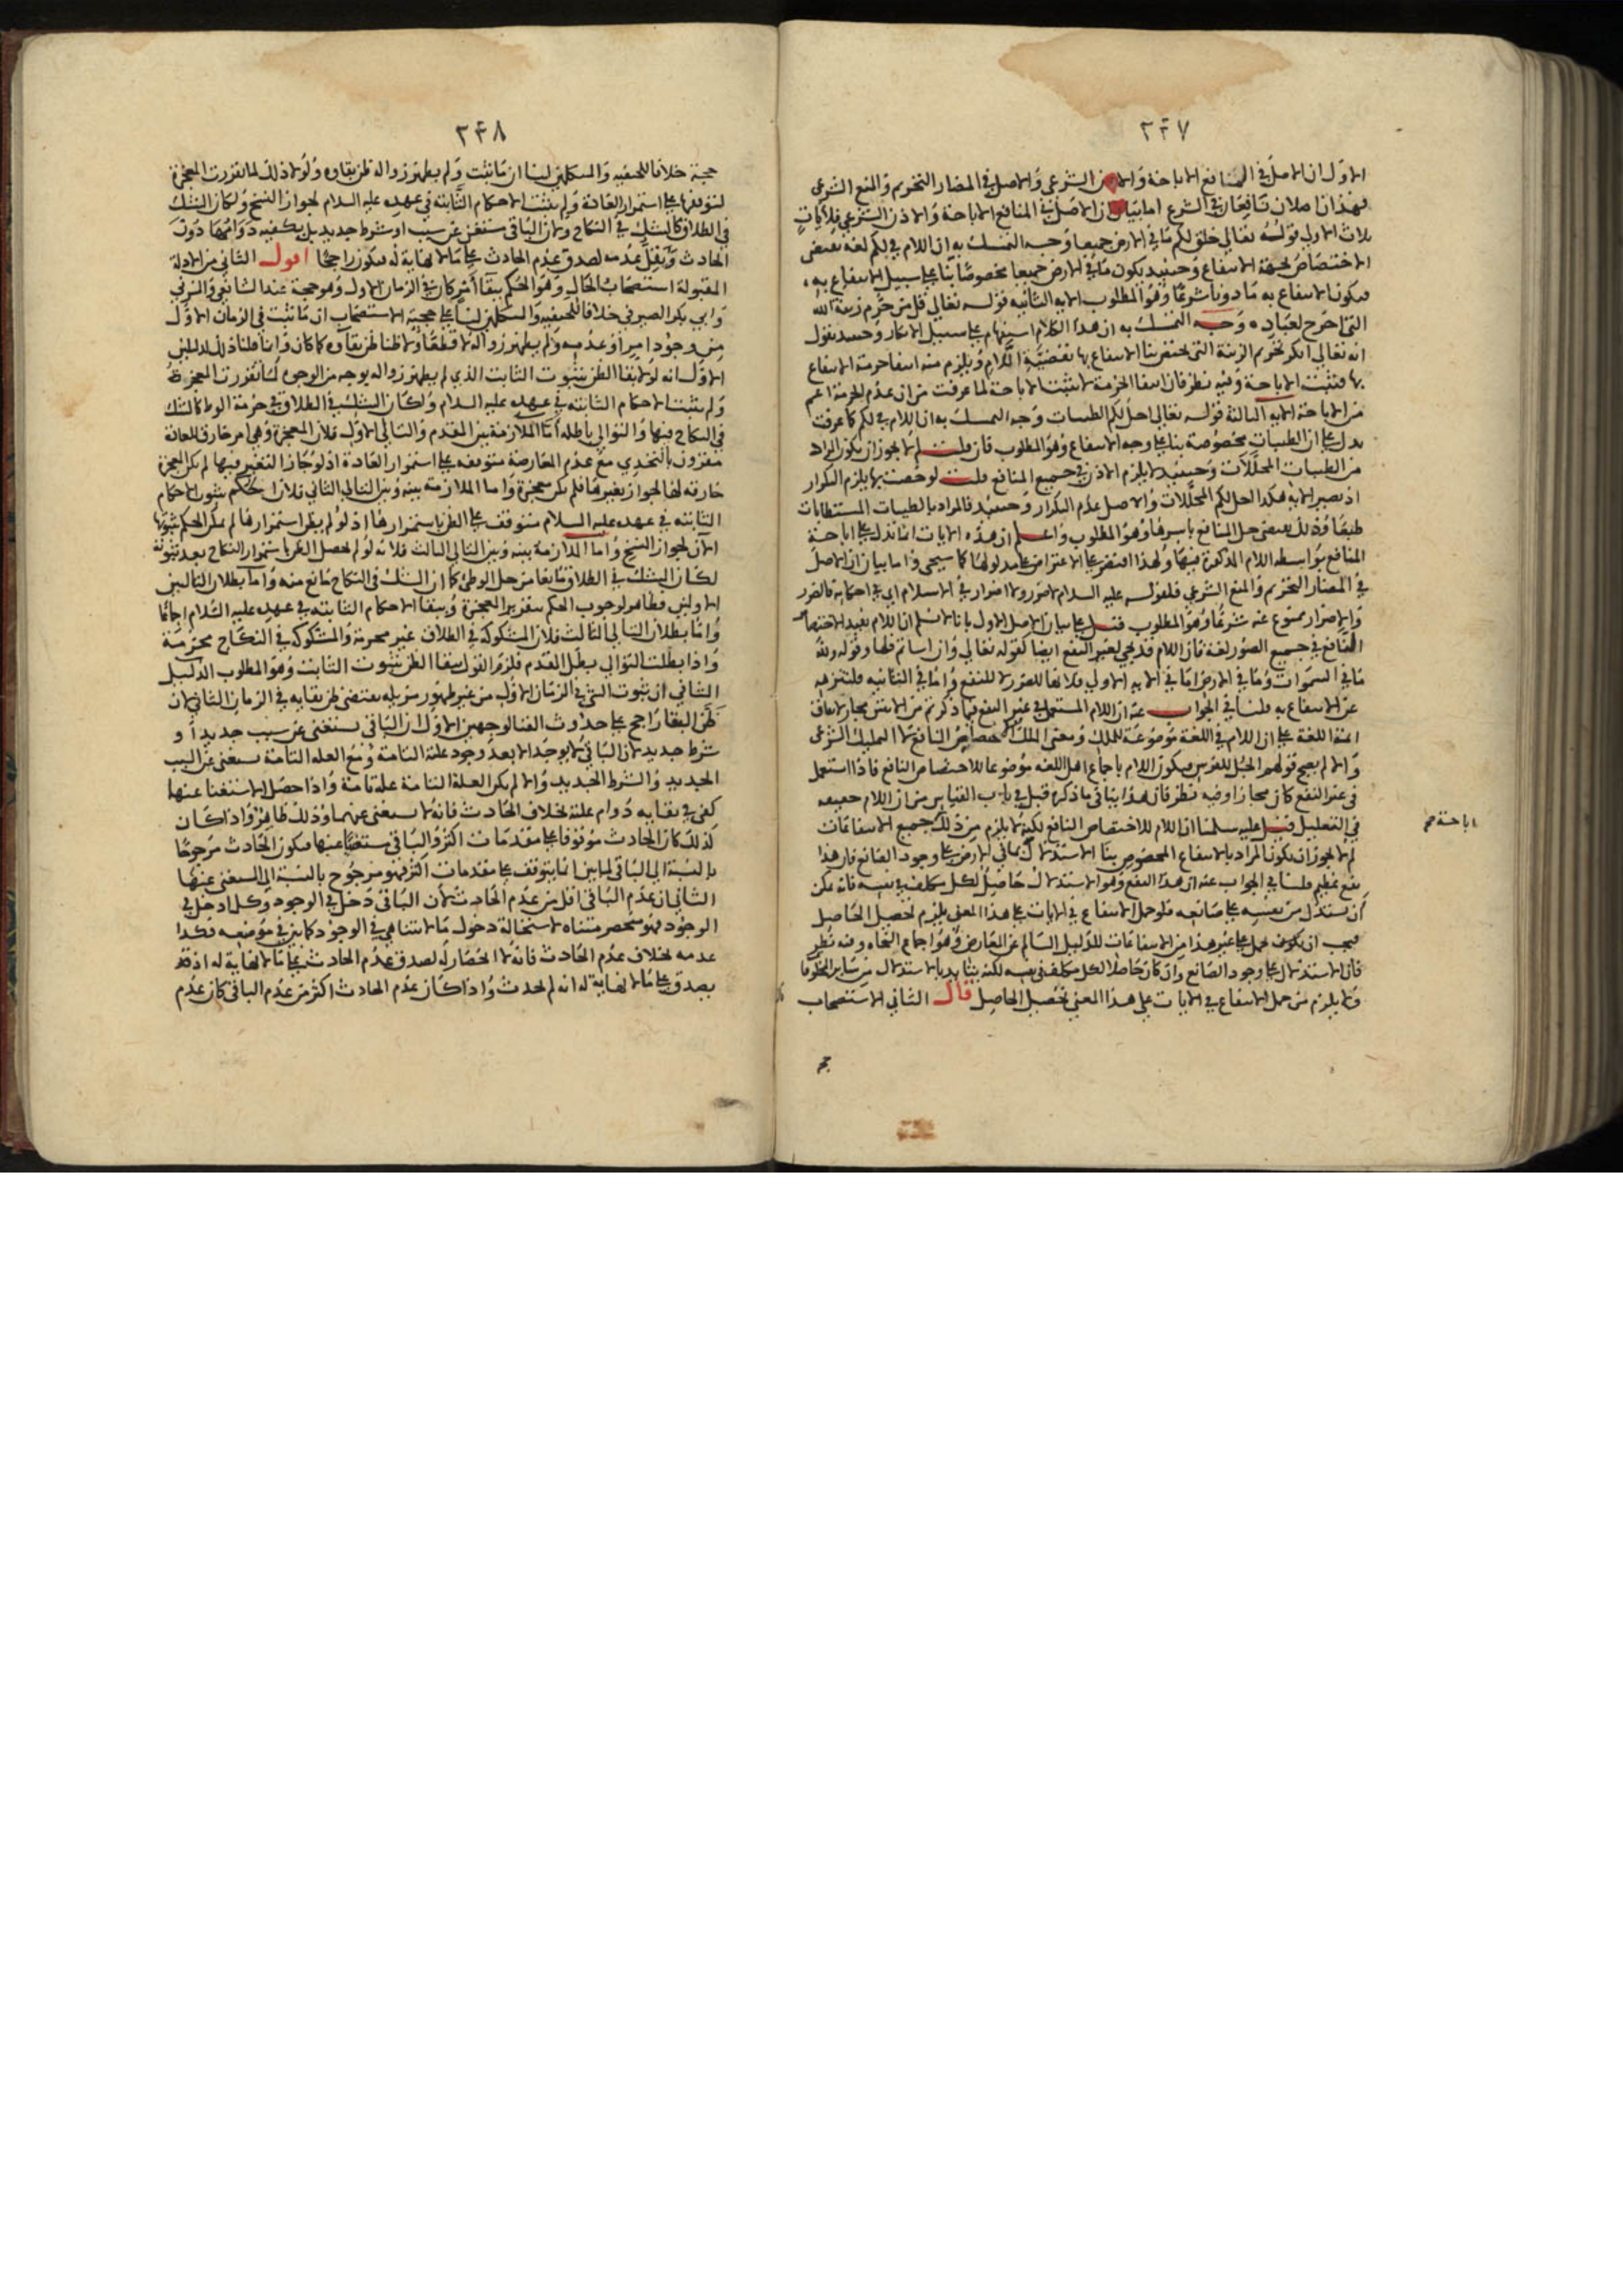 ٢٤٧
الاول ان الاصل في المنافع الاباحة والاذن الشرعي والاصل في المضار التحريم والمنع الشرعي
فهذان اصلان نافعان في الشرع اما بيان ان الاصل في المنافع الاباحة والاذن الشرعي فلايات
ثلاث الاولى قوله تعالى خلق لكم ما في الارض جميعا وجه التمسك به ان اللام في لكم لغة تقتضي
الاختصاص لجهة الانتفاع وحينئذ يكون ما في الارض جميعا مخصوصا بنا على سبيل الانتفاع به
فيكون الانتفاع به مأذونا شرعا وهو المطلوب الاية الثانية قوله تعالى قل من حرم زينة الله
التي اخرج لعباده وجه التمسك به ان هذا الكلام استفهام على سبيل الانكار وحينئذ نقول
انه تعالى انكر تحريم الزينة التي يختص بنا الانتفاع بها بقضية اللام ويلزم منه انتفا حرمة الانتفاع
بها فتثبت الاباحة وفيه نظر فان انتفا الحرمة لا تثبت الاباحة لما عرفت من ان عدم الحرمة اعم
من الاباحة الاية الثالثة قوله تعالى احل لكم الطيبات وجه التمسك به ان اللام في لكم كما عرفت
يدل على ان الطيبات مخصوصة بنا على وجه الانتفاع وهو المطلوب فان قلت لم لا يجوز ان يكون المراد
من الطيبات المحللات وحينئذ لا يلزم الاذن في جميع المنافع قلت لو خصت بها يلزم التكرار
اذ يصير الاية هكذا احل لكم المحللات والاصل عدم التكرار وحينئذ فالمراد بالطيبات المستطابات
طبعا وذلك يقتضي حل المنافع باسرها وهو المطلوب واعلم ان هذه الايات انما تدل على اباحة
المنافع بواسطة اللام المذكورة فيها ولهذا اقتصر على الاعتراض على مدلولها كما سيجي واما بيان ان الاصل
في المضار التحريم والمنع الشرعي فلقوله عليه السلام لا ضرر ولا اضرار في الاسلام اي في احكامه فالضرر
والاضرار ممنوع عنه شرعا وهو المطلوب قيل على بيان الاصل الاول بانا لا نسلم ان اللام تفيد الاختصاص
المنافع في جميع الصور لغة فان اللام قد يجي لغير النفع ايضا كقوله تعالى وان اسأتم فلها وقوله ولله
ما في السموات وما في الارض اما في الاية الاولى فلانها للضرر لا للنفع واما في الثانية فلتنزهه
عن الانتفاع به قلنا في الجواب عنه ان اللام المستعمل في غير النفع فيما ذكرتم من الايتين مجاز لاتفاق
ائمة اللغة على ان اللام في اللغة موضوعة للملك ومعنى الملك اختصاص النافع لا التمليك الشرعي
والا لم يصح قولهم الجل للفرس فيكون اللام باجماع اهل اللغة موضوعا للاختصاص النافع فاذا استعمل
في غير النفع كان مجازا وفيه نظر فان هذا ينافي ما ذكره قبل في باب القياس من ان اللام حقيقة
في التعليل قيل عليه سلمنا ان اللام للاختصاص النافع لكن لا يلزم من ذلك جميع الانتفاعات
اباحة صح
لم لا يجوز ان يكون المراد بالانتفاع المخصوص بنا الاستدلال بما في الارض على وجود الصانع فان هذا
نفع عظيم قلنا في الجواب عنه ان هذا النفع وهو الاستدلال حاصل لكل مكلف في نفسه فانه يمكن
ان يستدل من نفسه على صانعه فلو حمل الانتفاع في الايات على هذا المعنى يلزم تحصيل الحاصل
فيجب ان يكون محمل على غير هذا من الانتفاعات للدليل السالم عن المعارض وهو اجماع النحاه وفيه نظر
فان الاستدلال على وجود الصانع وان كان حاصلا لكل مكلف في نفسه لكنه يتايد بالاستدلال من ساير المخلوقا
ولا يلزم من حمل الانتفاع في الايات على هذا المعنى تحصيل الحاصل قال الثاني الاستصحاب
٢٤٨
حجة خلافا للحنفيه والمتكلمين لنا ان ما ثبت ولم يظهر زواله ظن بقاوه ولولا ذلك لما تقررت المعجزة
لتوقفها على استمرار العادة ولم يثبت الاحكام الثابتة في عهده عليه السلام لجواز النسخ ولكان الشك
في الطلاق كالشك في النكاح ولان الباقي مستغن عن سبب او شرط جديد بل يكفيه دوامهما دون
الحادث ويقل عدمه لصدق عدم الحادث على ما لا نهاية له فيكون راجحا اقول الثاني من الادلة
المقبولة استصحاب الحال وهو الحكم ببقا امر كان في الزمان الاول وهو حجة عند الشافعي والمزني
وابي بكر الصيرفي خلافا للحنفيه والمتكلمين لنا على حجية الاستصحاب ان ما ثبت في الزمان الاول
من وجود امر او عدمه ولم يظهر زواله لا قطعا ولا ظنا ظن بقاوه كما كان وانا قلنا ذلك لدليلين
الاول انه لولا بقا الظن بثبوت الثابت الذي لم يظهر زواله بوجه من الوجوه لما تقررت المعجزة
ولم تثبت الاحكام الثابتة في عهده عليه السلام ولكان الشك في الطلاق في حرمة الوطء كالشك
في النكاح فيها والتوالي باطلة اما الملازمة بين المقدم والتالي الاول فلان المعجزة وهي امر خارق للعادة
مقرون بالتحدي مع عدم المعارضة متوقفة على استمرار العادة اذ لو جاز التغير فيها لم يكن المعجزة
خارقة لها لجواز تغيرها فلم يكن معجزة واما الملازمة بينه وبين التالي الثاني فلان الحكم بثبوت الاحكام
الثابتة في عهده عليه السلام متوقف على الظن باستمرارها اذ لو لم يظن استمرارها لم يمكن الحكم بثبوتها
الآن لجواز النسخ واما الملازمة بينه وبين التالي الثالث فلانه لو لم يحصل الظن باستمرار النكاح بعد ثبوته
لكان الشك في الطلاق مانعا من حل الوطئ كما ان الشك في النكاح مانع منه واما بطلان التاليين
الاولين فظاهر لوجوب الحكم بتقرير المعجزة وببقا الاحكام الثابتة في عهده عليه السلام اجماعا
واما بطلان التالي الثالث فلان المشكوكة في الطلاق غير محرمة والمشكوكة في النكاح محرمة
واذا بطلت التوالي بطل المقدم فلزم القول ببقا الظن بثبوت الثابت وهو المطلوب الدليل
الثاني ان ثبوت الشي في الزمان الاول من غير ظهور مزيله يقتضي ظن بقايه في الزمان الثاني لان
ظن البقا راجح على حدوث الفنا لوجهين الاول ان الباقي يستغني عن سبب جديد او
شرط جديد لان الباقي لا يوجد الا بعد وجود علته التامة ومع العلة التامة يستغني عن السبب
الجديد والشرط الجديد والا لم يكن العلة التامة علة تامة واذا حصل الاستغنا عنها
كفى في بقايه دوام علته بخلاف الحادث فانه لا يستغني عنهما وذلك ظاهر واذا كان
كذلك كان الحادث موقوفا على مقدمات اكثر والباقي مستغنيا عنها فيكون الحادث مرجوحا
بالنسبة الى الباقي لما بين ان ما يتوقف على مقدمات اكثر فهو مرجوح بالنسبة الى المستغني عنها
الثاني ان عدم الباقي اقل من عدم الحادث لان الباقي دخل في الوجود وكل ما دخل في
الوجود فهو منحصر متناه لاستحالة دخول ما لا يتناهى في الوجود كما بين في موضعه فكذا
عدمه بخلاف عدم الحادث فانه لا انحصار له لصدق عدم الحادث على ما لا نهاية له اذ قد
يصدق على ما لا نهاية له انه لم يحدث واذا كان عدم الحادث اكثر من عدم الباقي كان عدم